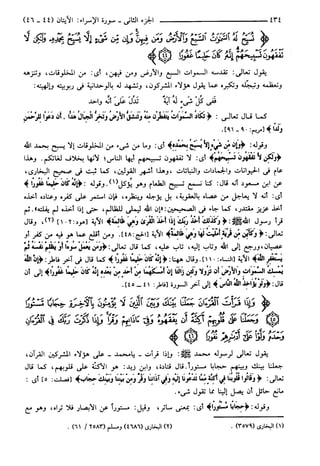 ٤٣٤ الجزء الثاني - سورة الإسراء: الآيتان (٤٤ - ٤٦)
﴿ تُسَبِّحُ لَهُ السَّمَاوَاتُ السَّبْعُ وَالْأَرْضُ وَمَن فِيهِنَّ وَإِن مِّن شَيْءٍ إِلَّا يُسَبِّحُ بِحَمْدِهِ وَلَٰكِن لَّا
تَفْقَهُونَ تَسْبِيحَهُمْ إِنَّهُ كَانَ حَلِيمًا غَفُورًا ﴾
يقول تعالى: تقدسه السموات السبع والأرض ومن فيهن، أي: من المخلوقات، وتنزهه
وتعظمه وتبجله وتكبره عما يقول هؤلاء المشركون، وتشهد له بالوحدانية في ربوبيته وإلهيته:
ففي كل شيء له آية تدل على أنه واحد
كما قال تعالى: ﴿ تَكَادُ السَّمَاوَاتُ يَتَفَطَّرْنَ مِنْهُ وَتَنشَقُّ الْأَرْضُ وَتَخِرُّ الْجِبَالُ هَدًّا . أَن دَعَوْا لِلرَّحْمَٰنِ
وَلَدًا ﴾ [مريم: ٩٠ - ٩١].
وقوله: ﴿وَإِن مِّن شَيْءٍ إِلَّا يُسَبِّحُ بِحَمْدِهِ﴾ أي: وما من شيء من المخلوقات إلا يسبح بحمد الله
﴿وَلَٰكِن لَّا تَفْقَهُونَ تَسْبِيحَهُمْ﴾ أي: لا تفقهون تسبيحهم أيها الناس؛ لأنها بخلاف لغاتكم. وهذا
عام في الحيوانات والجمادات والنباتات، وهذا أشهر القولين، كما ثبت في صحيح البخاري،
عن ابن مسعود أنه قال: كنا نسمع تسبيح الطعام وهو يؤكل(١). وقوله: ﴿إِنَّهُ كَانَ حَلِيمًا غَفُورًا ﴾
أي: أنه لا يعاجل من عصاه بالعقوبة، بل يؤجله وينظره، فإن استمر على كفره وعناده أخذه
أخذ عزيز مقتدر، كما جاء في الصحيحين: «إن الله ليملي للظالم، حتى إذا أخذه لم يفلته». ثم
قرأ رسول الله ﷺ: ﴿ وَكَذَٰلِكَ أَخْذُ رَبِّكَ إِذَا أَخَذَ الْقُرَىٰ وَهِيَ ظَالِمَةٌ﴾ الآية [هود: ١٠٢] (٢)، وقال
تعالى: ﴿ وَكَأَيِّن مِّن قَرْيَةٍ أَمْلَيْتُ لَهَا وَهِيَ ظَالِمَةٌ﴾ الآية [الحج: ٤٨]. ومن أقلع عما هو فيه من كفر أو
عصيان، ورجع إلى الله وتاب إليه، تاب عليه، كما قال تعالى: ﴿وَمَن يَعْمَلْ سُوءًا أَوْ يَظْلِمْ نَفْسَهُ ثُمَّ
يَسْتَغْفِرِ اللَّهَ﴾ الآية [النساء: ١١٠]. وقال ههنا: ﴿إِنَّهُ كَانَ حَلِيمًا غَفُورًا﴾ كما قال في آخر فاطر: ﴿إِنَّ اللَّهَ
يُمْسِكُ السَّمَاوَاتِ وَالْأَرْضَ أَن تَزُولَا وَلَئِن زَالَتَا إِنْ أَمْسَكَهُمَا مِنْ أَحَدٍ مِّن بَعْدِهِ إِنَّهُ كَانَ حَلِيمًا غَفُورًا﴾ إلى أن
قال: ﴿وَلَوْ يُؤَاخِذُ اللَّهُ النَّاسَ﴾ إلى آخر السورة [فاطر: ٤١ - ٤٥].
﴿ وَإِذَا قَرَأْتَ الْقُرْآنَ جَعَلْنَا بَيْنَكَ وَبَيْنَ الَّذِينَ لَا يُؤْمِنُونَ بِالْآخِرَةِ حِجَابًا مَّسْتُورًا
وَجَعَلْنَا عَلَىٰ قُلُوبِهِمْ أَكِنَّةً أَن يَفْقَهُوهُ وَفِي آذَانِهِمْ وَقْرًا وَإِذَا ذَكَرْتَ رَبَّكَ فِي الْقُرْآنِ
وَحْدَهُ وَلَّوْا عَلَىٰ أَدْبَارِهِمْ نُفُورًا ﴾
يقول تعالى لرسوله محمد ﷺ: وإذا قرأت - يا محمد - على هؤلاء المشركين القرآن،
جعلنا بينك وبينهم حجابا مستوراً. قال قتادة، وابن زيد: هو الأكنة على قلوبهم، كما قال
تعالى: ﴿ وَقَالُوا قُلُوبُنَا فِي أَكِنَّةٍ مِّمَّا تَدْعُونَا إِلَيْهِ وَفِي آذَانِنَا وَقْرٌ وَمِن بَيْنِنَا وَبَيْنِكَ حِجَابٌ﴾ [فصلت: ٥] أي:
مانع حائل أن يصل إلينا مما تقول شيء.
وقوله: ﴿حِجَابًا مَّسْتُورًا﴾ أي: بمعنى ساتر، وقيل: مستوراً عن الأبصار فلا تراه، وهو مع
(١) البخاري (٣٥٧٩). (٢) البخاري (٤٦٨٦) ومسلم (٢٥٨٣ / ٦١).